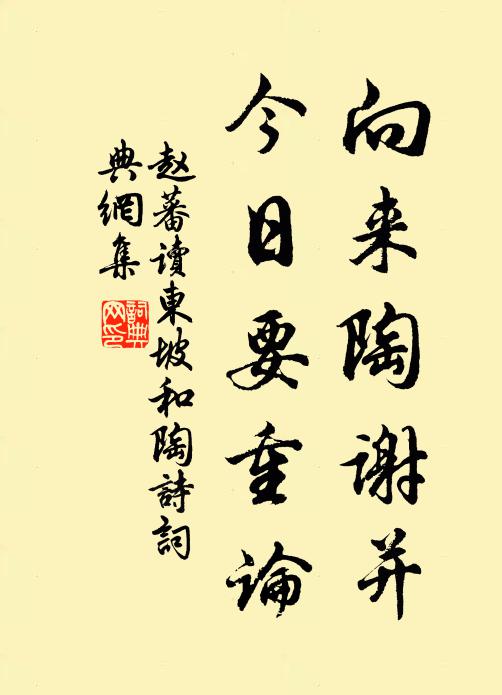 向来陶谢并
今日要重论
赵蕃读東坡和陶詩詞
典網集
詞典網印